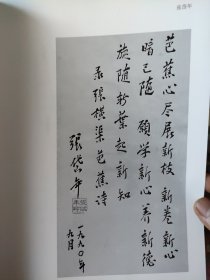 張岱年
芭蕉心尽展新枝 新卷新心
暗已随 願学新心养新德
旋随新葉起新知
录張横渠芭蕉诗
張岱年
一九九〇年
九月